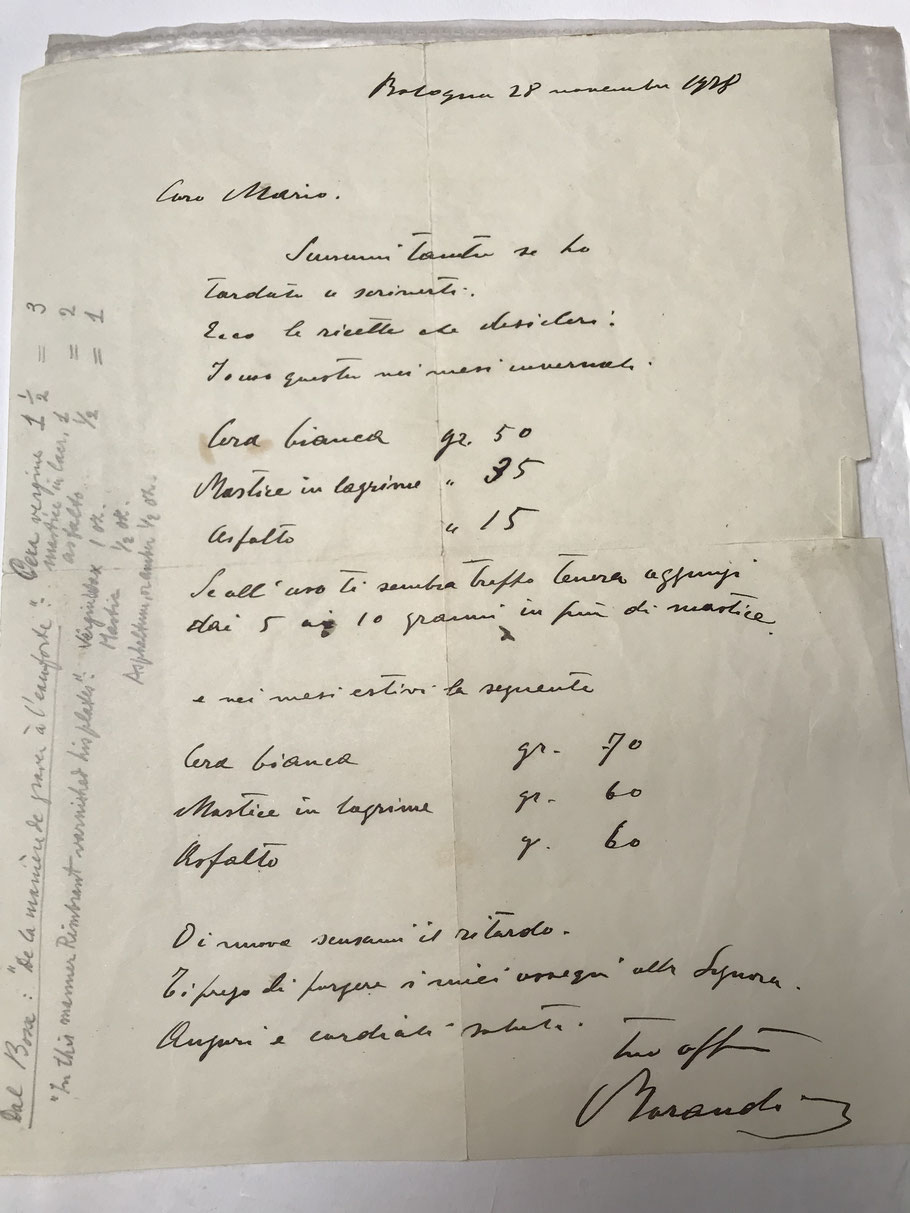 Bologna 28 novembre 1928
Caro Mario.
Scusami tanto se ho
tardato a scriverti.
Ecco le ricette che desideri:
Io uso questa nei mesi invernali.
Cera bianca gr. 50
Mastice in lagrime " 35
Asfalto " 15
Se all'uso ti sembra troppo tenera aggiungi
dai 5 ai 10 grammi in più di mastice.
e nei mesi estivi la seguente
Cera bianca gr. 70
Mastice in lagrime gr. 60
Asfalto gr. 60
Di nuovo scusami il ritardo.
Ti prego di porgere i miei ossequi alla Signora.
Auguri e cordiali saluti.
Tuo aff
Morandi
Dal Bosse: "De la manière de graver à l'eauforte": Cera vergine 1 1/2 = 3
mastice in lacr. 1 = 2
asfalto 1/2 = 1
"In this manner Rimbrant varnished his plates": Virgin Wax 1 oz.
Mastic 1/2 oz.
Asphaltum, or amber 1/2 oz.